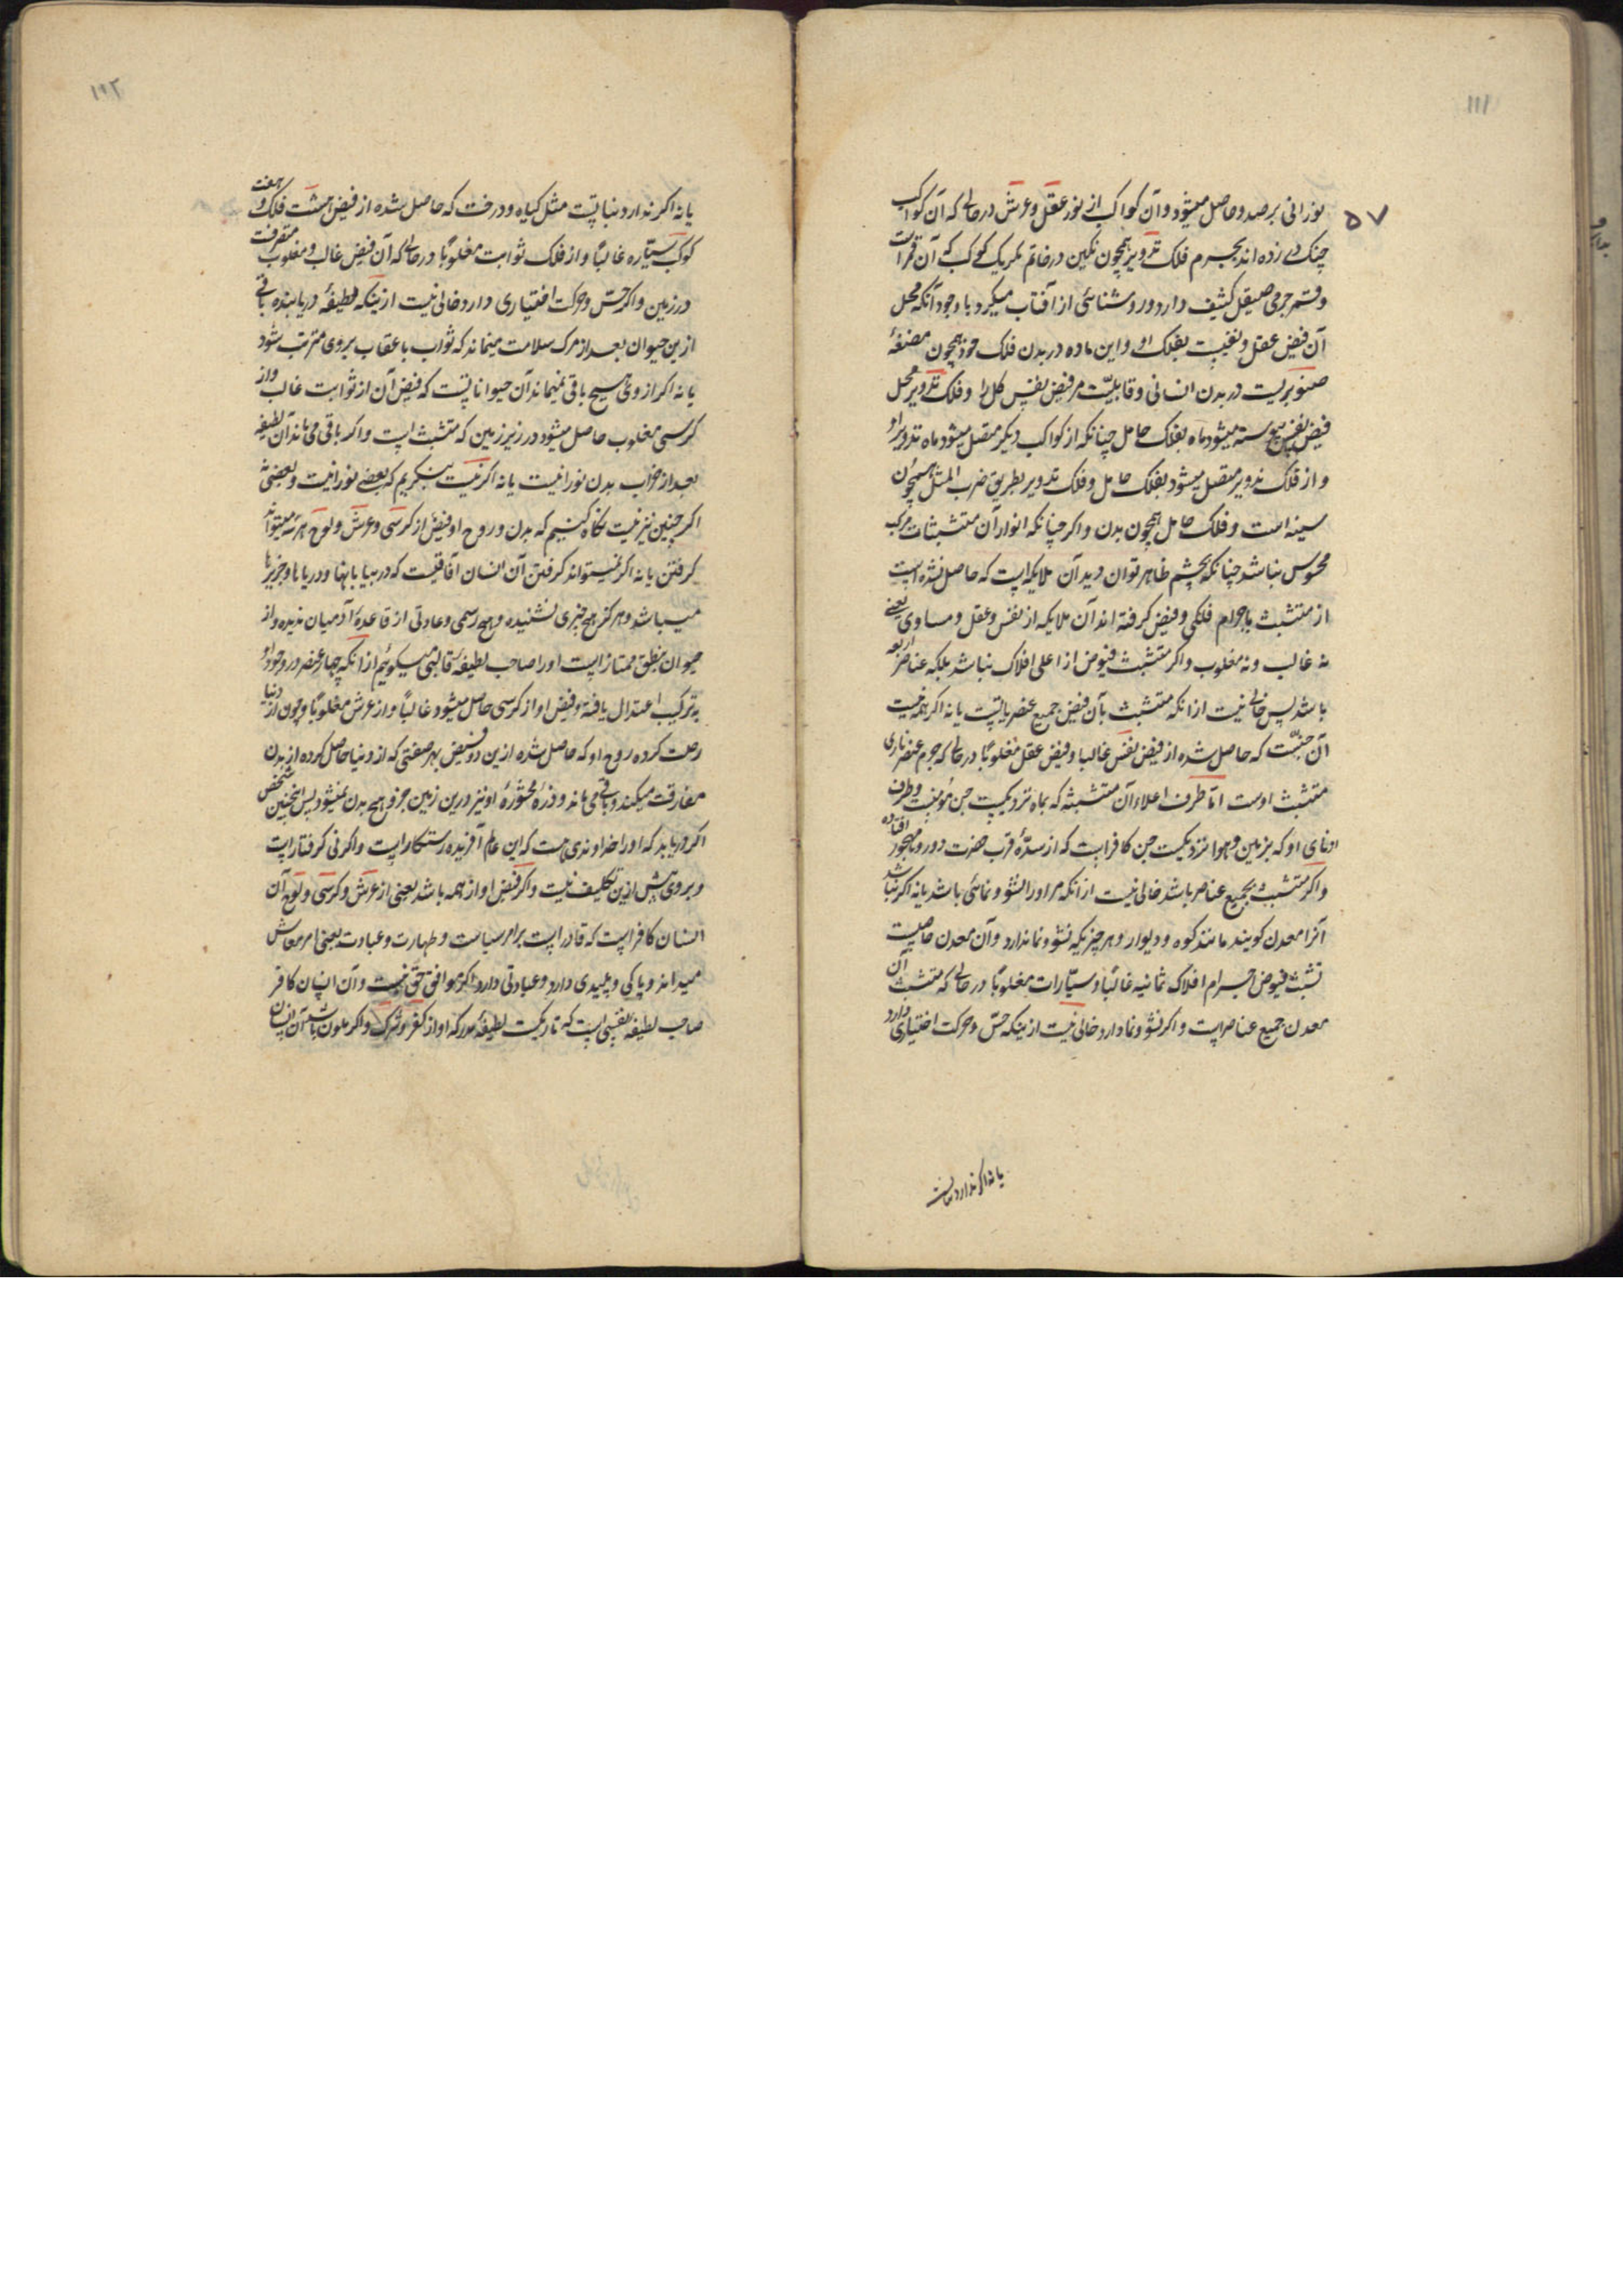 ۱۱۱
۵۷
نورانی برصد و حاصل میشود و آن کواکب از نور عقل و عرش در حالی که آن کواکب
چنک در زده اند بجرم فلک تدویر همچون نکین در خاتم مکر یک کوکب که آن قمر است
و قمر جرمی صیقل کثیف دارد و روشنائی از آفتاب میکیرد با وجود آنکه محل
آن فیض عقل و نفس بفلک او و این ماده در بدن فلک خود همچون مضغهٔ
صنوبریست در بدن انسانی و قابلیت مر فیض نفس کل را و فلک تدویر محل
فیض نفس پیوسته میشود ماه بفلک حامل چنانکه از کواکب دیکر متصل میشود ماه تدویر او
و از فلک تدویر متصل میشود بفلک حامل و فلک تدویر بطریق ضرب المثل همچون
سینه است و فلک حامل همچون بدن و اکر چنانکه انوار آن متشبثات مرکب
محسوس نباشد چنانکه بچشم ظاهر توان دید آن ملایکه ایست که حاصل نشده است
از متشبث باجرام فلکی و فیض کرفته اند آن ملایکه از نفس و عقل و مساوی یعنی
نه غالب و نه مغلوب و اکر متشبث فیوض از اعلی افلاک نباشد بلکه عناصر اربعه
باشد پس خالی نیست از آنکه متشبث بآن فیض جمیع عنصریاتست یا نه اکر همه نیست
آن جنیّست که حاصل شده از فیض نفس غالبا و فیض عقل مغلوبا در حالی که جرم عنصر ناری
متشبث اوست امّا طرف اعلاء آن متشبثه که بماه نزدیکست جن مؤمنست و طرف
ادنای او که بزمین و هوا نزدیکست جن کافر است که از سدّهٔ قرب حضرت دور و مهجور افتاده
و اکر متشبث بجمیع عناصر باشد خالی نیست از آنکه مر او را نشو و نمائی باشد یا نه اکر نباشد
آنرا معدن کویند مانند کوه و دیوار و هر چیزیکه نشو و نما ندارد و آن معدن خاصیت
تشبث فیوض اجرام افلاک ثمانیه غالبًا و سیّارات مغلوبًا در حالی که متشبث آن
معدن جمیع عناصر است و اکر نشو و نما دارد خالی نیست ازینکه حسّ و حرکت اختیاری دارد
یا نه اکر ندارد نباتیست
۱۱۲
یا نه اکر ندارد نباتیست مثل کیاه و درخت که حاصل شده از فیض هشت فلک و هفت
کوکب سیّاره غالبًا و از فلک ثوابت مغلوبًا در حالی که آن فیض غالب و مغلوب متصرفست
در زمین و اکر حسّ و حرکت اختیاری دارد خالی نیست ازینکه لطیفهٔ دریابنده باقی
ازین حیوان بعد از مرک سلامت میماند که ثواب یا عقاب بر وی مترتب شود
یا نه اکر از وی هیچ باقی نمیماند آن حیواناتست که فیض آن از ثوابت غالب و از
کرسی مغلوب حاصل میشود در زیر زمین که متشبث است و اکر باقی می ماند آن لطیفه
بعد از خراب بدن نورانیت یا نه اکر نیست بنکریم که بعضی نورانیت و بعضی نه
اکر چنین نیز نیست نکاه کنیم که بدن و روح او فیض از کرسی و عرش و لوح هر سه میتواند
کرفتن یا نه اکر نمیتواند کرفتن آن انسان آفاقیست که در بیابانها و دریاها و جزیرها
میباشد و هرکز هیچ خبری نشنیده و هیچ رسمی و عادتی از قاعدهٔ آدمیان ندیده و از
حیوان بنطق ممتاز است او را صاحب لطیفهٔ قالبی میکوئیم از آنکه چهار عنصر در وجود او
بترکیب اعتدال یافته و فیض او از کرسی حاصل میشود غالبًا و از عرش مغلوبًا و چون از دنیا
رحلت کرده روح او که حاصل شده ازین دو فیض بهر صفتی که از دنیا حاصل کرده از بدن
مفارقت میکند و باقی می ماند و ذرهٔ محشورهٔ او نیز درین زمین جزو هیچ بدن نمیشود پس اینچنین شخص
اکر دریابد که او را خداوندی هست که این عالم آفریده رستکار است و اکر نی کرفتار است
و بر وی بیش ازین تکلیف نیست و اکر فیض او از همه باشد یعنی از عرش و کرسی و لوح آن
انسان کافر است که قادر است بر امر سیاست و طهارت و عبادت یعنی امر معاش
میداند و پاکی و پلیدی دارد و عبادتی دارد اکر موافق حق نیست و آن انسان کافر
صاحب لطیفهٔ نفسی است که تاریکست لطیفهٔ مدرکه او از کفر و شرک و اکر ملون باشد آن انسان